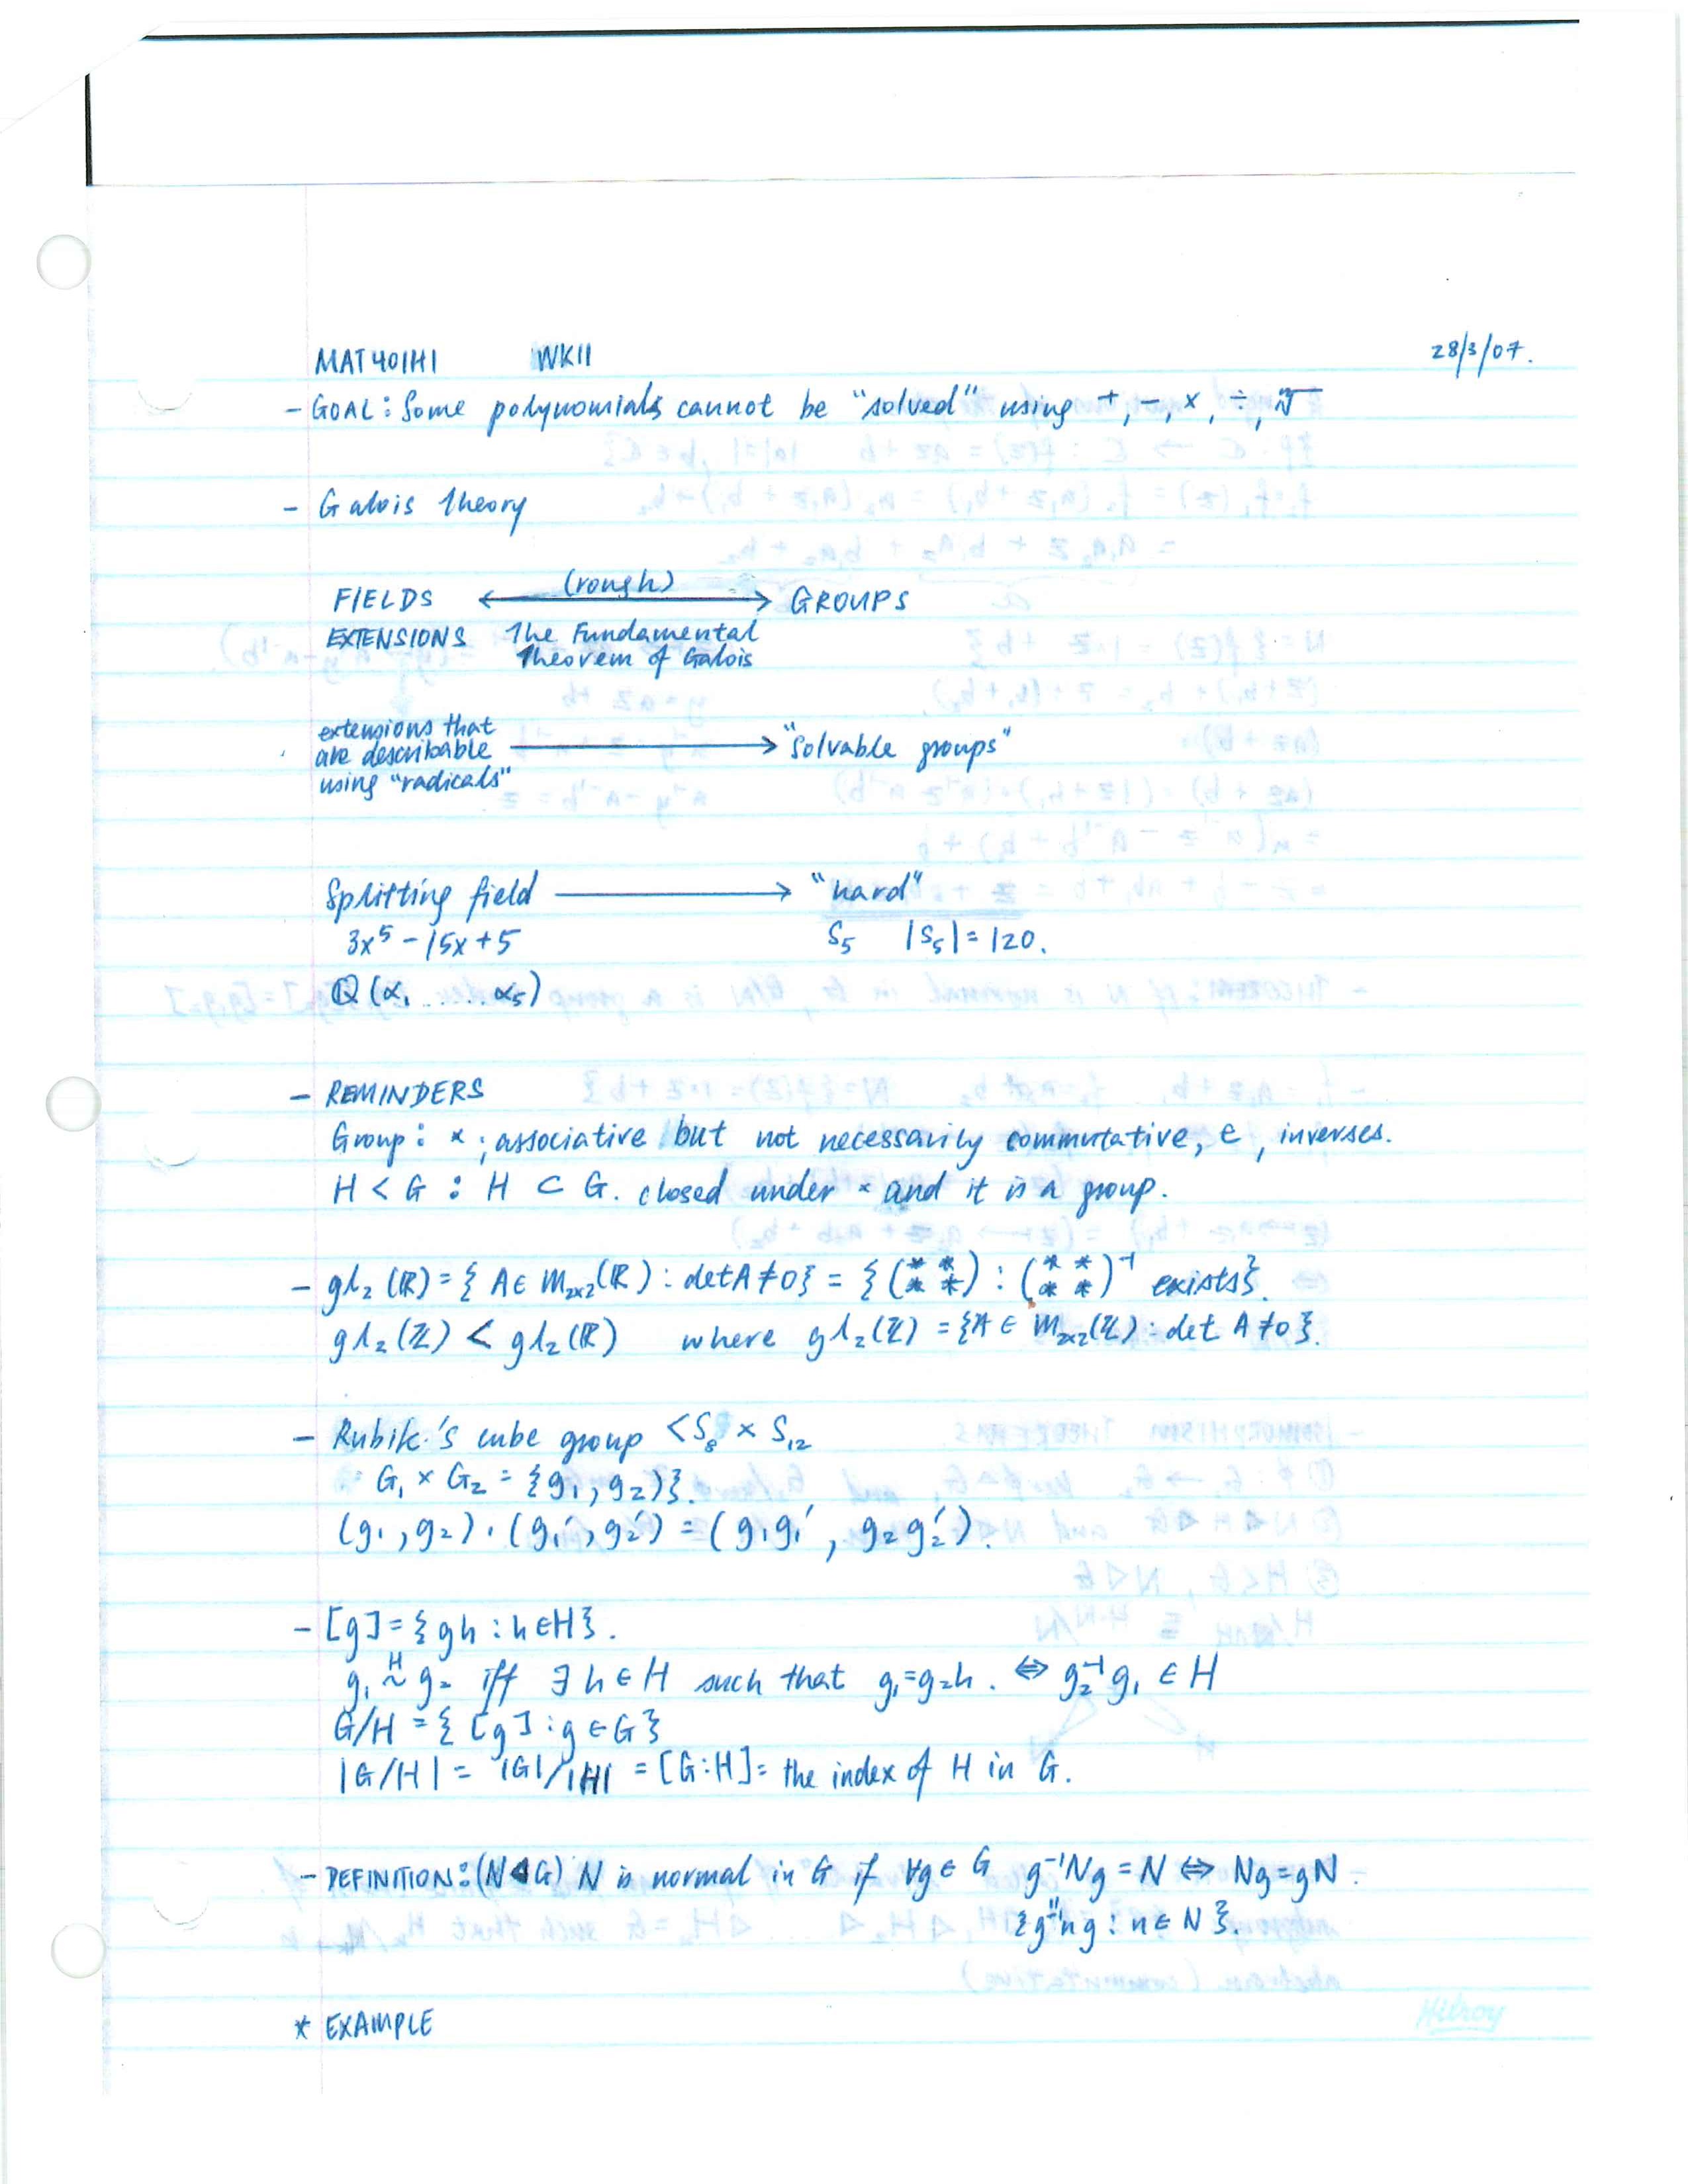 MAT401H1 WK11 28/3/07.
- GOAL: Some polynomials cannot be "solved" using +, -, ×, ÷, ⁿ√
- Galois theory
(rough)
FIELDS ⟷ GROUPS
EXTENSIONS The Fundamental
Theorem of Galois
extensions that
are describable ⟶ "Solvable groups"
using "radicals"
Splitting field ⟶ "hard"
3x⁵ - 15x + 5 S₅ |S₅| = 120.
ℚ(α₁ ..... α₅)
- REMINDERS
Group: *; associative but not necessarily commutative, e, inverses.
H < G : H ⊂ G. closed under * and it is a group.
- gl₂(ℝ) = { A ∈ M₂ₓ₂(ℝ) : det A ≠ 0} = { (* * * *) : (* * * *)⁻¹ exists}.
gl₂(ℤ) < gl₂(ℝ) where gl₂(ℤ) = {A ∈ M₂ₓ₂(ℤ) : det A ≠ 0}.
- Rubik's cube group < S₈ × S₁₂
G₁ × G₂ = {g₁, g₂)}.
(g₁, g₂) · (g₁', g₂') = (g₁g₁', g₂g₂').
- [g] = {gh : h ∈ H}.
g₁ ~ᴴ g₂ iff ∃ h ∈ H such that g₁ = g₂h. ⇔ g₂⁻¹g₁ ∈ H
G/H = { [g] : g ∈ G}
|G/H| = |G|/|H| = [G:H] = the index of H in G.
- DEFINITION: (N ◁ G) N is normal in G if ∀g ∈ G g⁻¹Ng = N ⇔ Ng = gN.
"
{g⁻¹ng : n ∈ N}.
* EXAMPLE
Hilroy